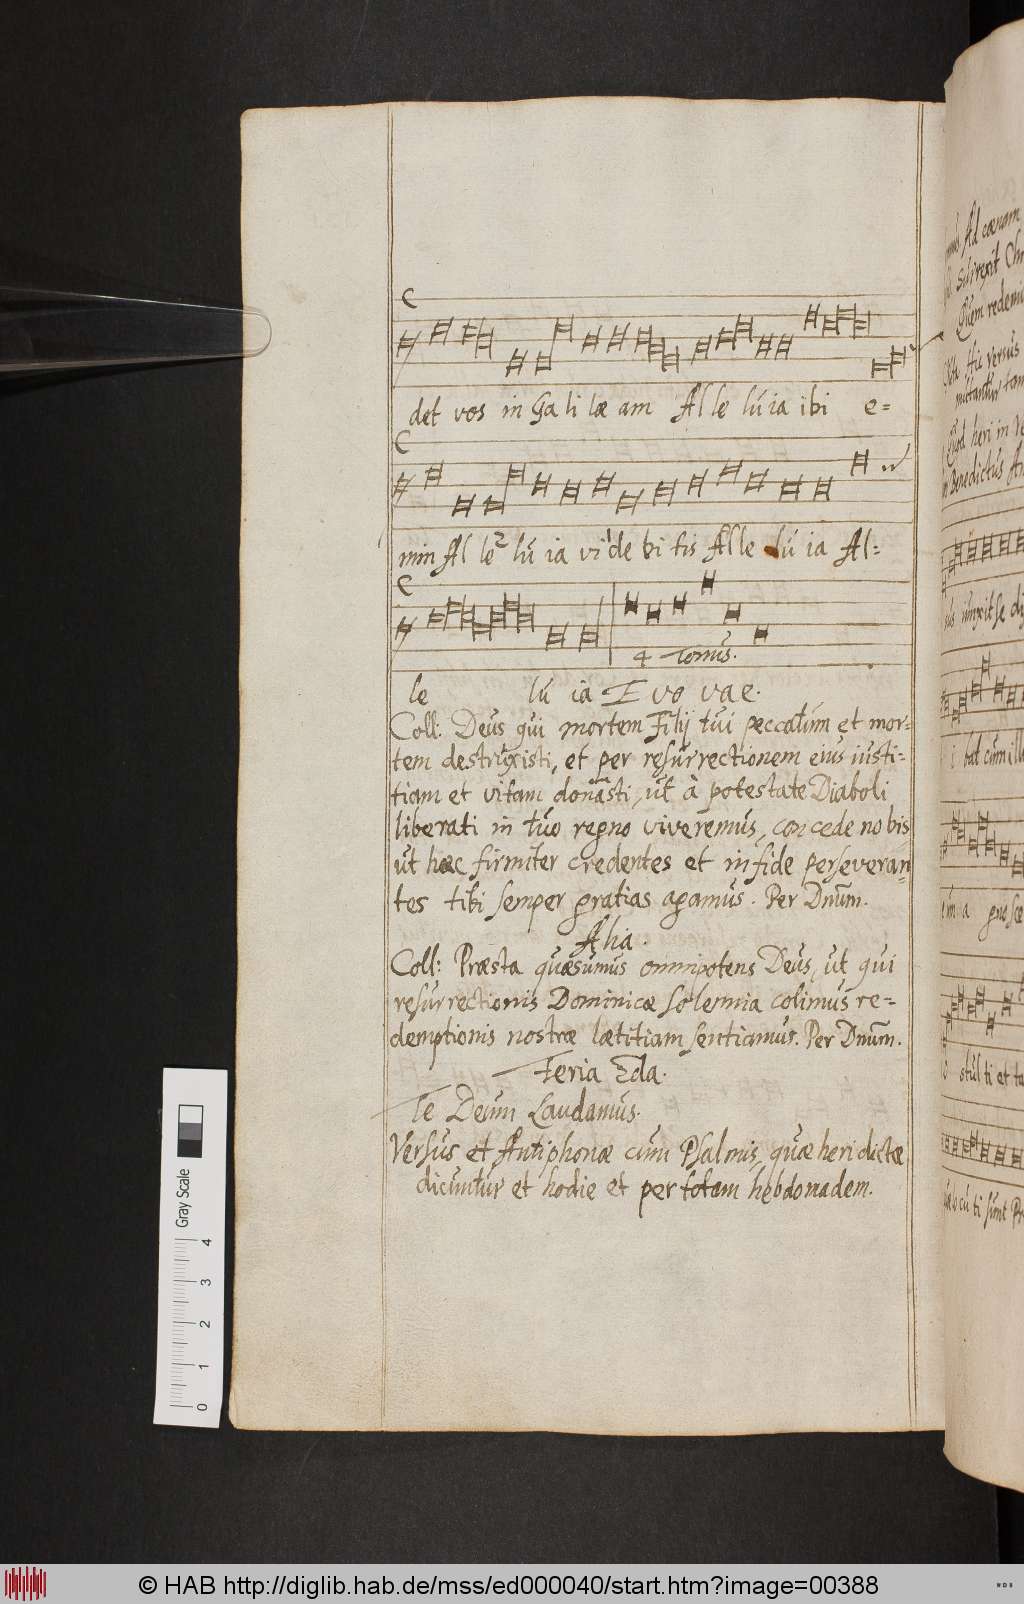 det vos in Ga li læ am Al le lu ia ibi e=
min Al le lu ia vi de bi tis Al le lu ia Al=
4 Tonus.
le lu ia E vo vae.
Coll: Deus qui mortem Filij tui peccatum et mor=
tem destruxisti, et per resurrectionem eius iusti=
tiam et vitam donasti, ut à potestate Diaboli
liberati in tuo regno viveremus, concede nobis
ut hæc firmiter credentes et in fide perseveran=
tes tibi semper gratias agamus. Per Dnum.
Alia.
Coll: Præsta quæsumus omnipotens Deus, ut qui
resurrectionis Dominicæ solemnia colimus re=
demptionis nostræ lætitiam sentiamus. Per Dnum.
Feria 2da.
Te Deum Laudamus.
Versus et Antiphonæ cum Psalmis, quæ heri dictæ
dicuntur et hodie et per totam hebdomadem.
Ad cœnam
Surrexit Chr
Quem redemi
Hic versus
mittantur tam
Quod heri in Ve
Benedictus An
unxit se di
i bat cum illi
stul ti et ta
lo cu ti sunt Pr
Gray Scale
4
3
2
1
0
© HAB http://diglib.hab.de/mss/ed000040/start.htm?image=00388